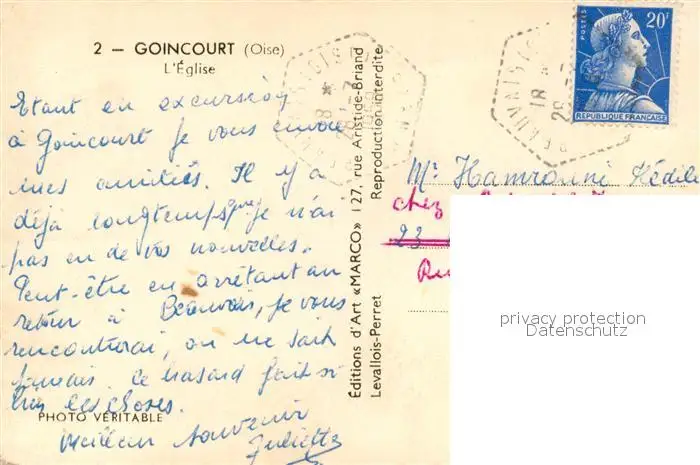 2 — GOINCOURT (Oise)
L'Église
Etant en excursion
à Goincourt je vous envoie
mes amitiés. Il y a
déjà longtemps que je n'ai
pas eu de vos nouvelles.
Peut-être en arrêtant au
retour à Beauvais, je vous
rencontrerai, on ne sait
jamais. Le hasard fait si
bien les choses.
PHOTO VÉRITABLE
Meilleur souvenir
Juliette
Éditions d'Art «MARCO» 127, rue Aristide-Briand
Levallois-Perret
Reproduction interdite
BEAUVAIS
18 *
28
POSTES
20F
REPUBLIQUE FRANÇAISE
Mr Hamrouni Kédil
chez
23
Ru
privacy protection
Datenschutz